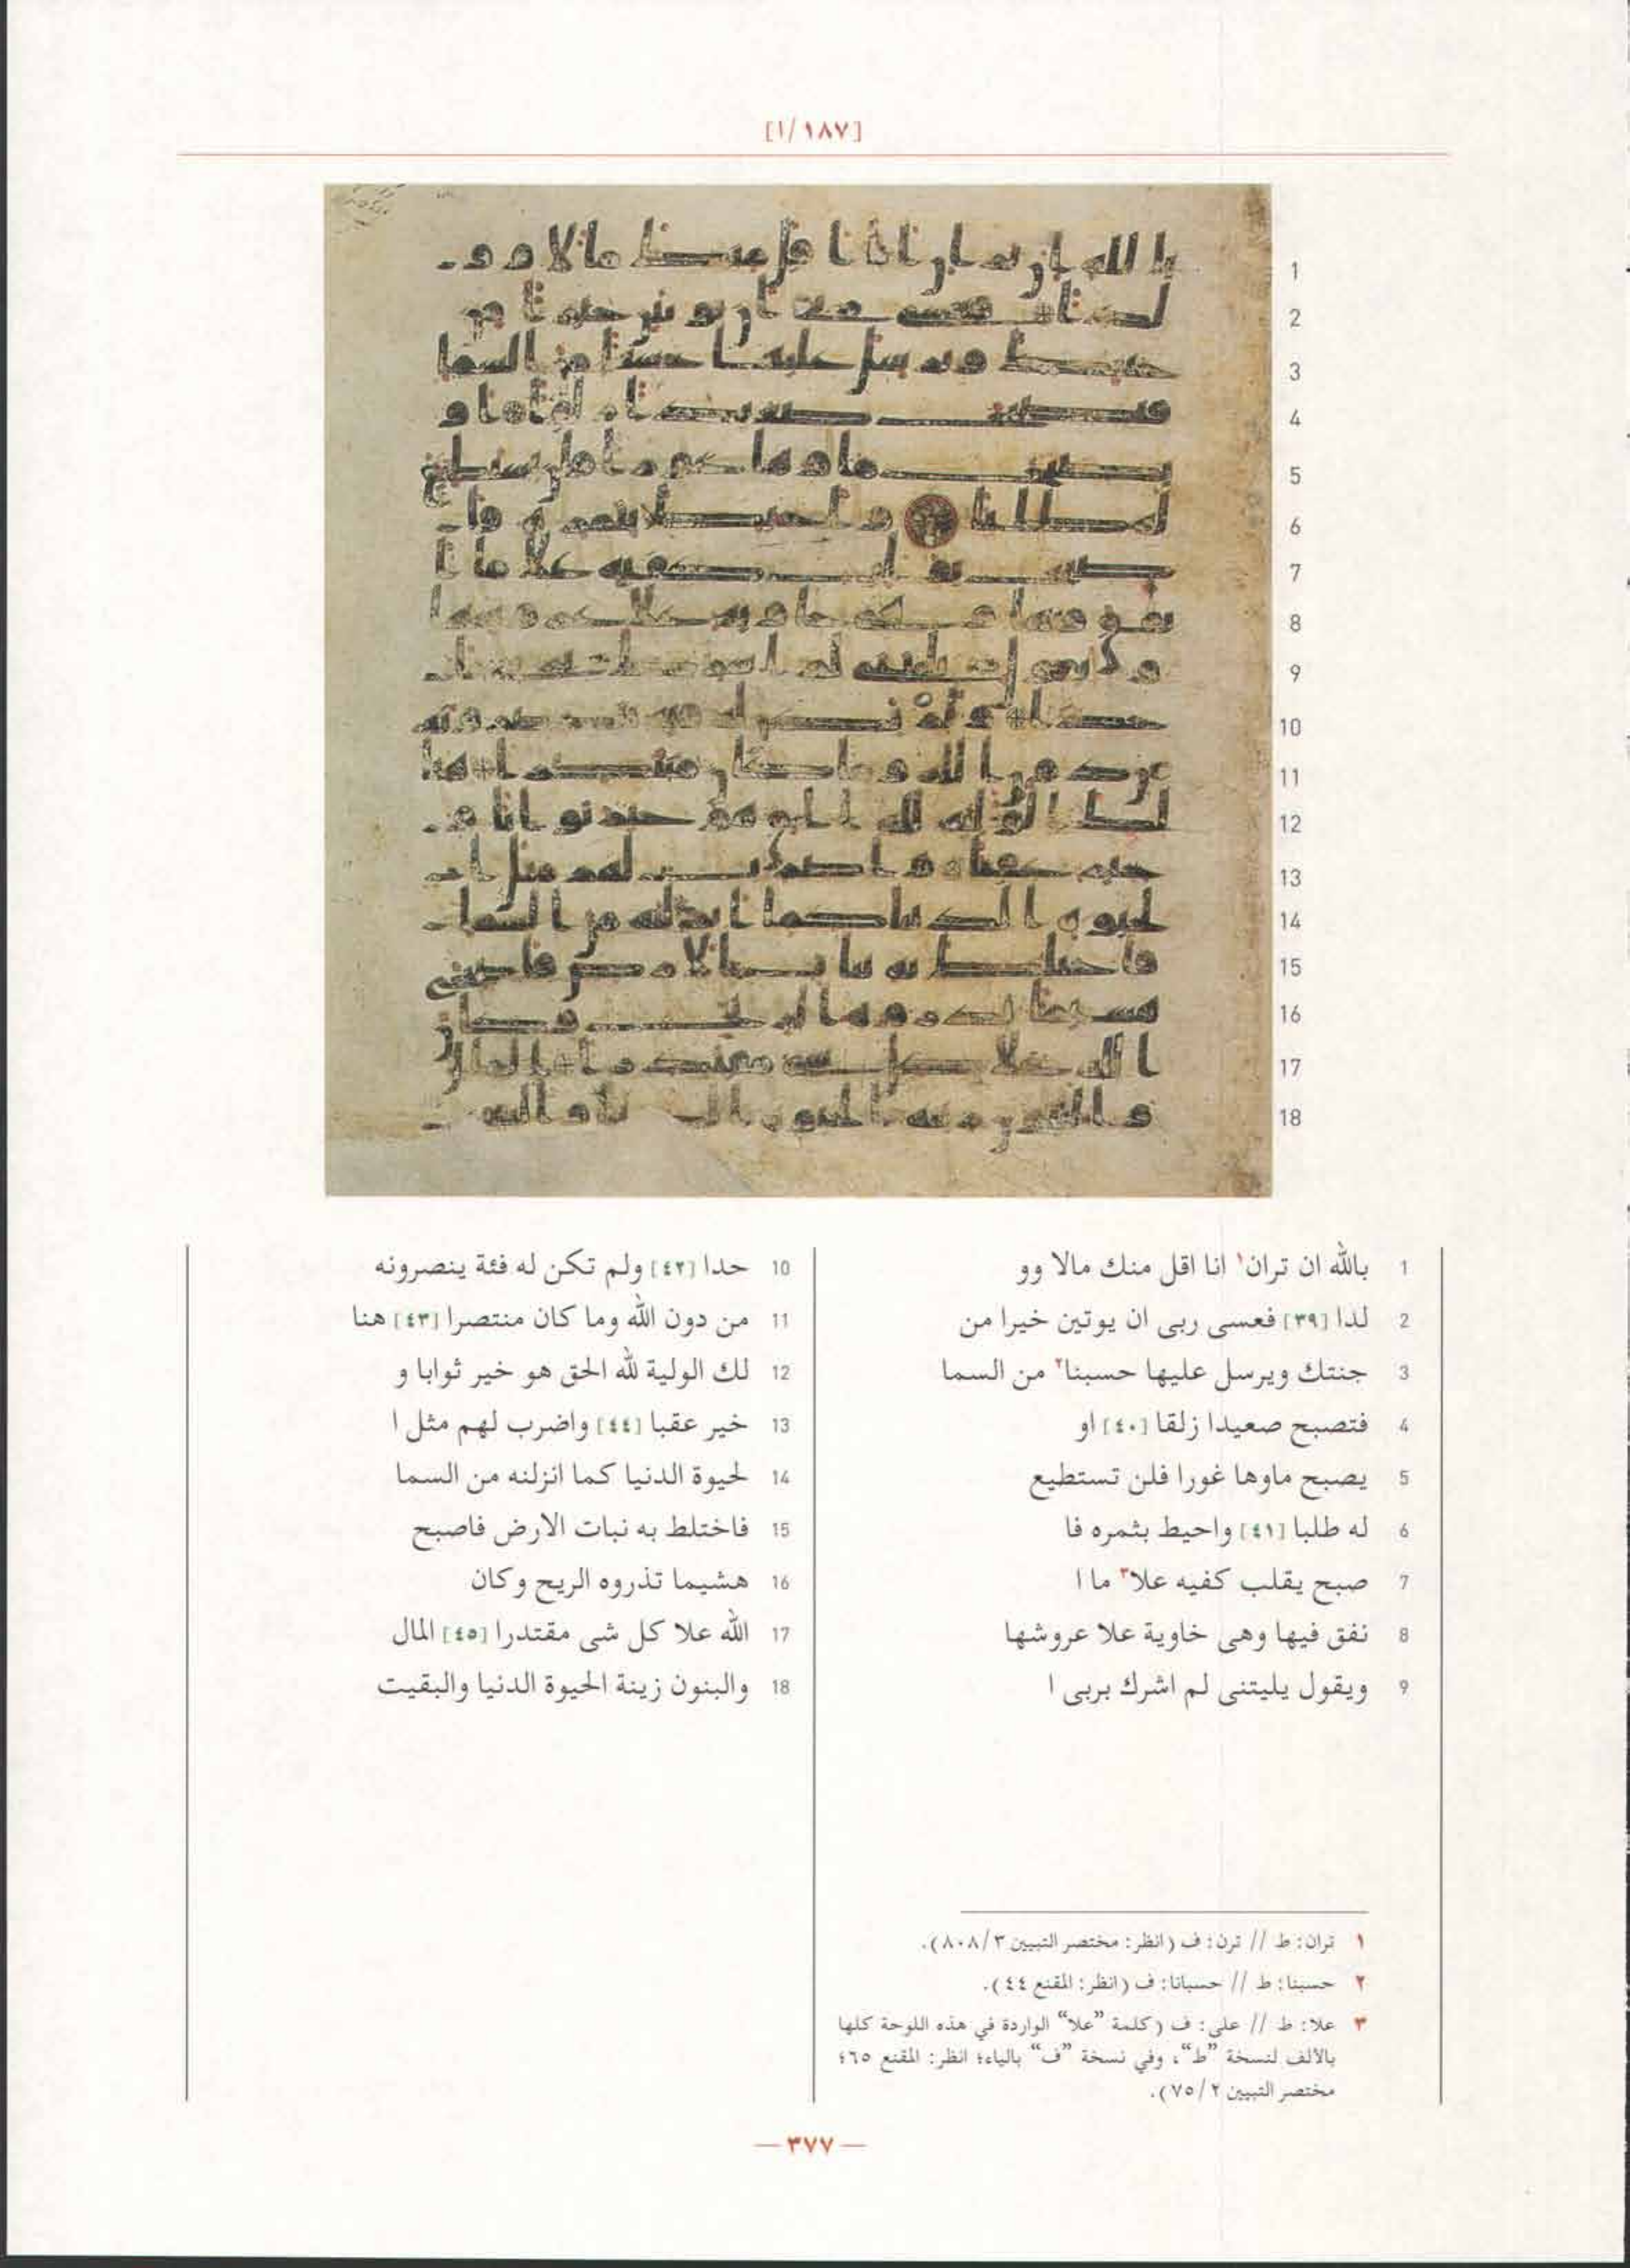 [١/١٨٧]
1 بالله ان تران١ انا اقل منك مالا وو
2 لدا [٣٩] فعسى ربى ان يوتين خيرا من
3 جنتك ويرسل عليها حسبنا٢ من السما
4 فتصبح صعيدا زلقا [٤٠] او
5 يصبح ماوها غورا فلن تستطيع
6 له طلبا [٤١] واحيط بثمره فا
7 صبح يقلب كفيه علا٣ ما ا
8 نفق فيها وهى خاوية علا عروشها
9 ويقول يليتنى لم اشرك بربى ا
10 حدا [٤٢] ولم تكن له فئة ينصرونه
11 من دون الله وما كان منتصرا [٤٣] هنا
12 لك الولية لله الحق هو خير ثوابا و
13 خير عقبا [٤٤] واضرب لهم مثل ا
14 لحيوة الدنيا كما انزلنه من السما
15 فاختلط به نبات الارض فاصبح
16 هشيما تذروه الريح وكان
17 الله علا كل شى مقتدرا [٤٥] المال
18 والبنون زينة الحيوة الدنيا والبقيت
١ تران: ط // ترن: ف (انظر: مختصر التبيين ٣/٨٠٨).
٢ حسبنا: ط // حسبانا: ف (انظر: المقنع ٤٤).
٣ علا: ط // على: ف (كلمة ”علا“ الواردة في هذه اللوحة كلها
بالألف لنسخة ”ط“، وفي نسخة ”ف“ بالياء؛ انظر: المقنع ٦٥؛
مختصر التبيين ٢/٧٥).
— ٣٧٧ —